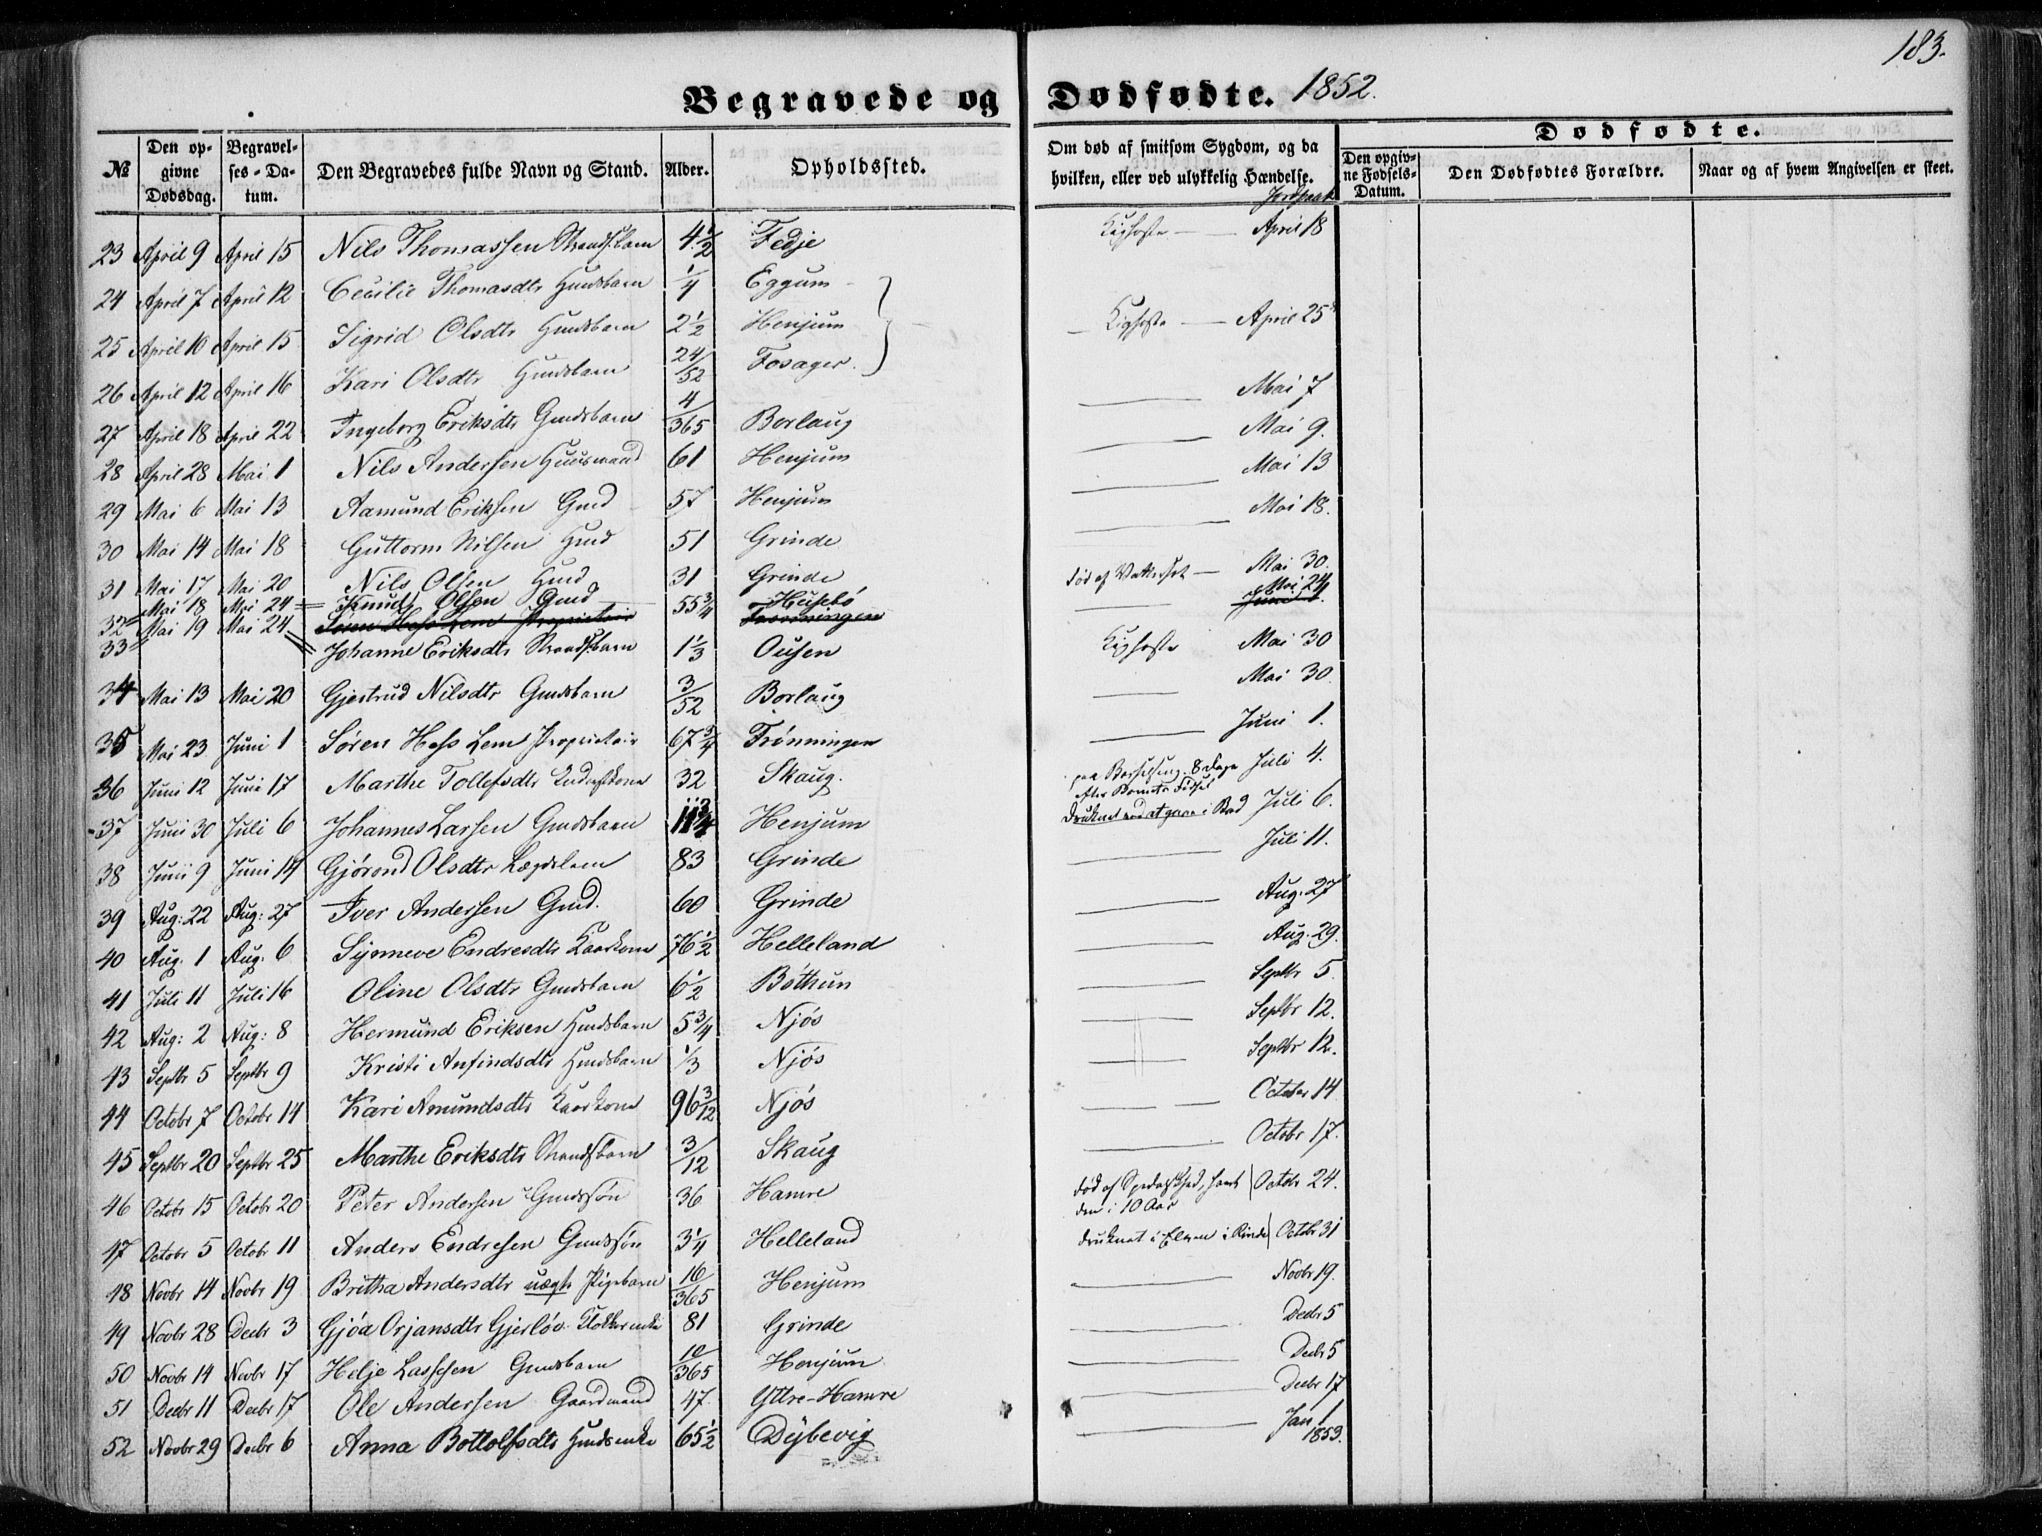 183.
Begravede og Dødfødte. 1852.
№
Den opgivne Dødsdag.
Begravelses-Datum.
Den Begravedes fulde Navn og Stand.
Alder.
Opholdssted.
Om død af smitsom Sygdom, og da hvilken, eller ved ulykkelig Hændelse.
Jordpaak.
Dødfødte.
Den opgivne Fødsels-Datum.
Den Dødfødtes Forældre.
Naar og af hvem Angivelsen er skeet.
23 April 9 April 15 Nils Thomassen Strandsbarn 4 1/2 Fedje Kighoste — April 18
24 April 7 April 12 Cecilie Thomasdtr Huusbarn 1/4 Eggum
25 April 10 April 15 Sigrid Olsdtr Huusbarn 2 1/2 Henjum — Kighoste — April 25
26 April 12 April 16 Kari Olsdtr Huusbarn 24/52 Fosager.
27 April 18 April 22 Ingeborg Eriksdtr Gmdsbarn 4/365 Borlaug — Mai 7
28 April 28 Mai 1 Nils Andersen Huusmand 61 Henjum — Mai 9.
29 Mai 6 Mai 13 Aamund Eriksen Gmd 57 Henjum — Mai 13
30 Mai 14 Mai 18 Guttorm Nilsen Hmd 51 Grinde — Mai 18.
31 Mai 17 Mai 20 Nils Olsen Hmd 31 Grinde død af Vattersot — Mai 30.
32 Mai 18 Mai 24 Knud Olsen Gmd 55 3/4 Husebö — Mai 24
Søren Hess Lem Proprietair Frönningen Juni 1.
33 Mai 19 Mai 24 Johanne Eriksdtr Strandsbarn 1 1/3 Ousen Kighoste Mai 30
34 Mai 13 Mai 20 Gjertrud Nilsdtr Gmdsbarn 3/52 Borlaug — Mai 30.
35 Mai 23 Juni 1 Søren Hess Lem Proprietair 67 3/4 Frönningen — Juni 1.
36 Juni 12 Juni 17 Marthe Tollefsdtr 32 Skaug. paa Barselseng 8 Dage efter Barnets Fødsel Juli 4.
37 Juni 30 Juli 6 Johannes Larsen Gmdsbarn Henjum Druknet i Bad Juli 6.
38 Juni 9 Juni 14 Gjörond Olsdtr Lægdslem 83 Grinde — Juli 11.
39 Aug: 22 Aug: 27 Iver Andersen Gmd. 60 Grinde — Aug. 27
40 Aug. 1 Aug. 6 Synneve Endresdtr Kaarkone 76 1/2 Helleland — Aug. 29.
41 Juli 11 Juli 16 Oline Olsdtr Gmdsbarn 6 1/2 Böthun — Septbr 5.
42 Aug: 2 Aug: 8 Hermund Eriksen Hmdsbarn 5 3/4 Njös — Septbr 12.
43 Septbr 5 Septbr 9 Kristi Anfindsdtr Hmdsbarn 1/3 Njös — Septbr 12.
44 Octobr 7 Octobr 14 Kari Amundsdtr Kaarkone 96 3/12 Njös — October 14
45 Septbr 20 Septbr 25 Marthe Eriksdtr Strandsbarn 3/12 Skaug — Octobr 17.
46 Octobr 15 Octobr 20 Peter Andersen Gmdssön 36 Hamre død af Spedalskhed, havt den i 10 Aar Octobr 24.
47 Octobr 5 Octobr 11 Anders Endresen Gmdssön 3 1/4 Helleland druknet i Elven i Rinde Octobr 31
48 Novbr 14 Novbr 19 Britha Andersdtr uægte Pigebarn 16/365 Henjum — Novbr 19.
49 Novbr 28 Decbr 3 Gjöa Orjansdtr Gjerlöv 81 Grinde — Decbr 5
50 Novbr 14 Novbr 17 Helje Lassesen Gmdsbarn 10/365 Henjum — Decbr 5
51 Decbr 11 Decbr 17 Ole Andersen Gaardmand 47. Yttre-Hamre — Decbr 17
52 Novbr 29 Decbr 6 Anna Bottolfsdtr Hmdsenke 65 1/2 Dybevig — Jan 1 1853.